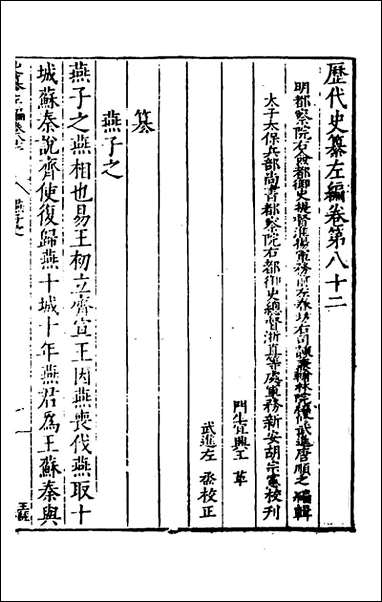 歷代史纂左編卷第八十二
明都察院右僉都御史提督淮揚軍務前右春坊右司諫兼翰林院編修武進唐順之編輯
太子太保兵部尚書都察院右都御史總督浙直等處軍務新安胡宗憲校刊
門生宜興王革
武進左烝校正
篡
燕子之
燕子之燕相也易王初立齊宣王因燕喪伐燕取十
城蘇秦說齊使復歸燕十城十年燕君爲王蘇秦與